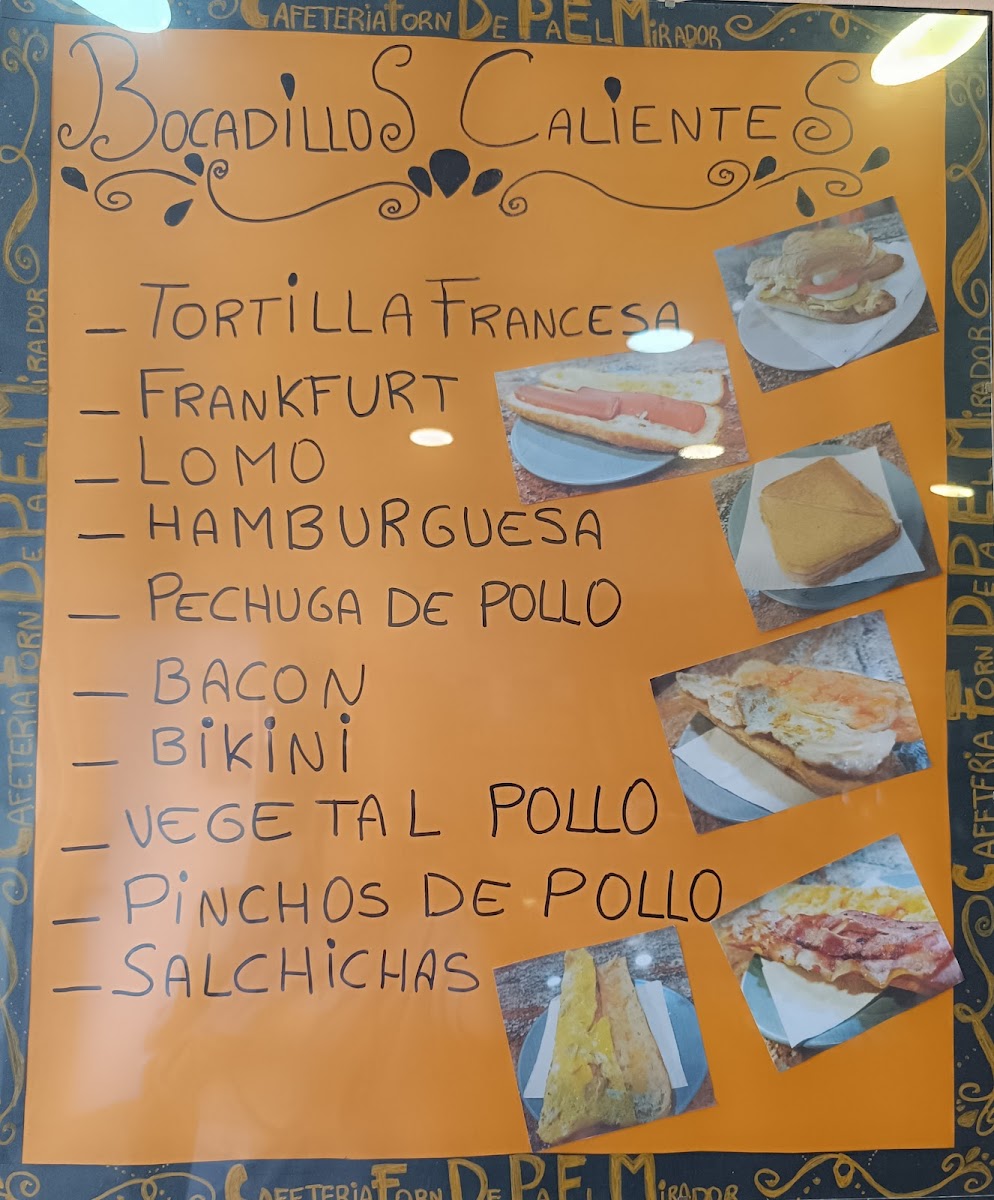 CAFETERIA FORN DE PA EL MIRADOR
BOCADILLOS CALIENTES
– TORTILLA FRANCESA
– FRANKFURT
– LOMO
– HAMBURGUESA
– PECHUGA DE POLLO
– BACON
– BIKINI
– VEGETAL POLLO
– PINCHOS DE POLLO
– SALCHICHAS
CAFETERIA FORN DE PA EL MIRADOR
CAFETERIA FORN DE PA EL MIRADOR
CAFETERIA FORN DE PA EL MIRADOR